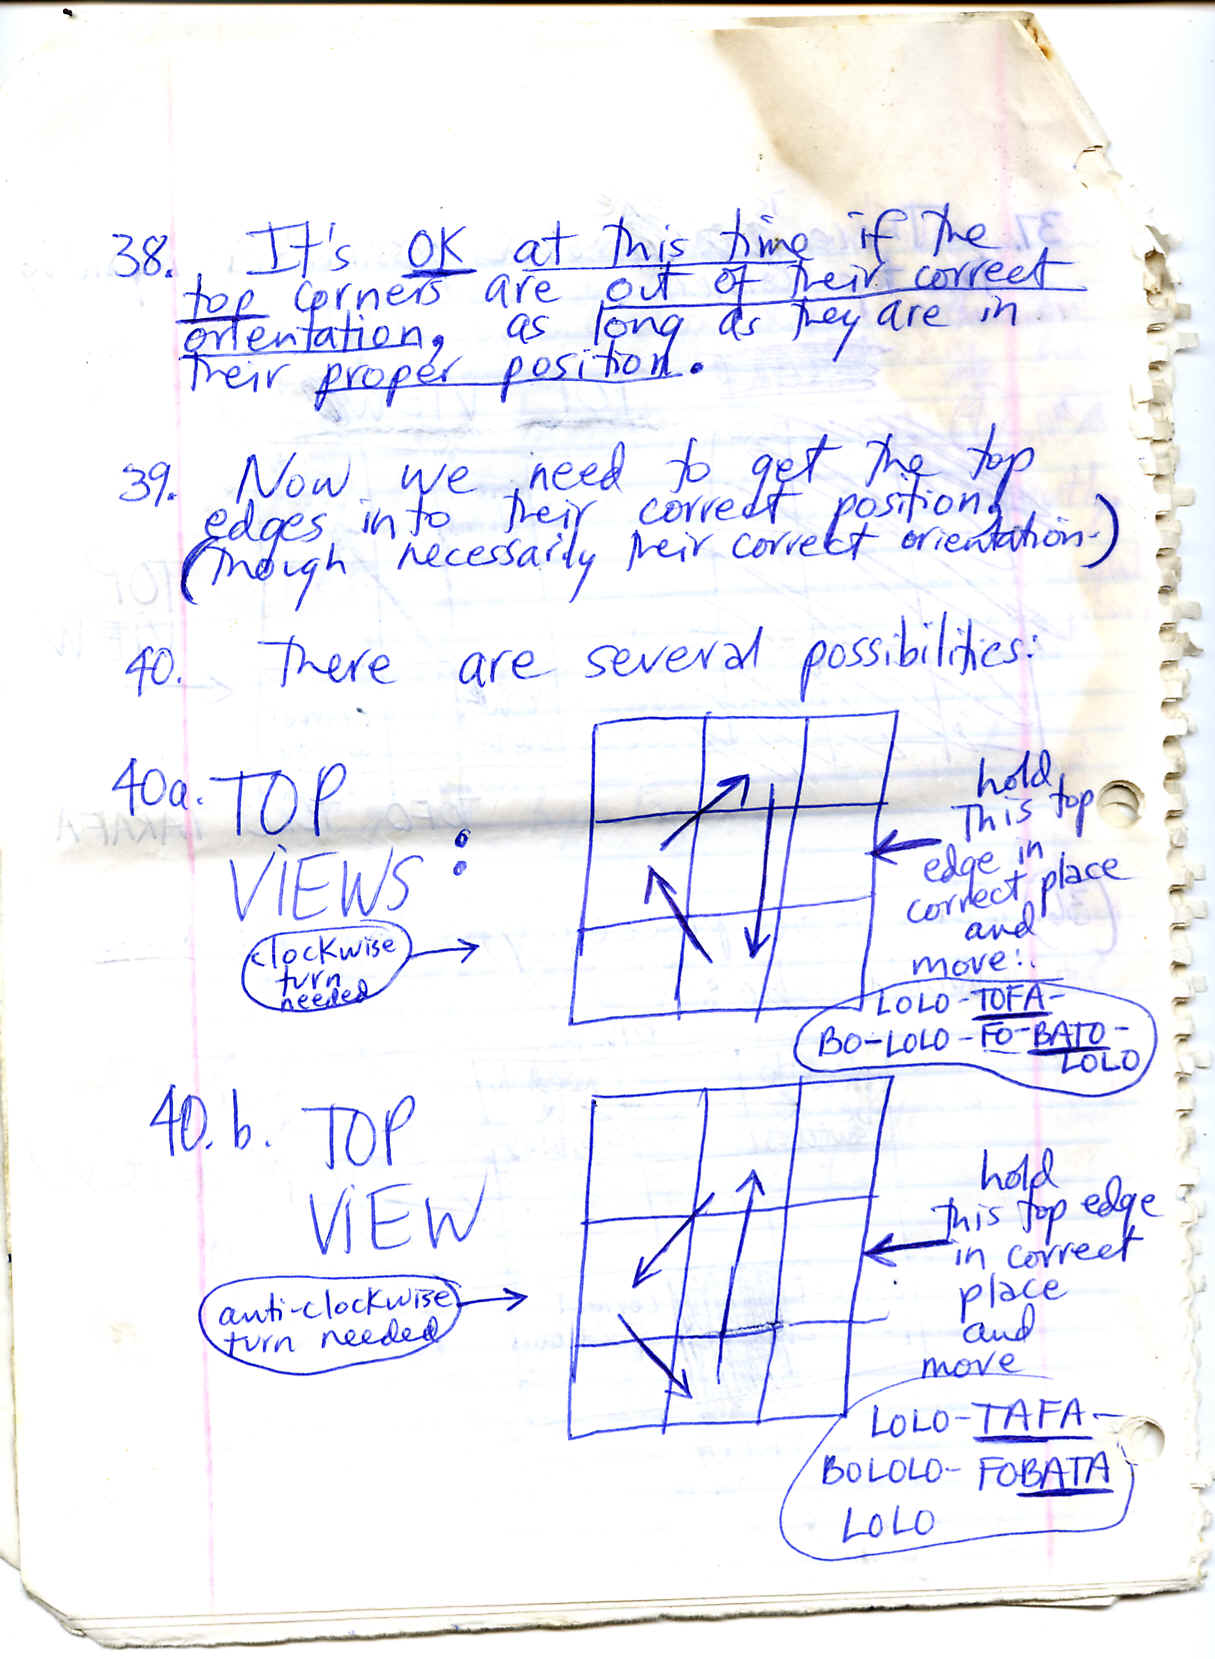 38. It's OK at this time if the
top corners are out of their correct
orientation, as long as they are in
their proper position.
39. Now we need to get the top
edges into their correct position,
(though necessarily their correct orientation.)
40. There are several possibilities:
40a. TOP
VIEWS:
clockwise
turn
needed
hold
this top
edge in
correct place
and
move:.
LOLO-TOFA-
BO-LOLO-FO-BATO-
LOLO
40.b. TOP
VIEW
anti-clockwise
turn needed
hold
this top edge
in correct
place
and
move
LOLO-TAFA-
BOLOLO- FOBATA
LOLO